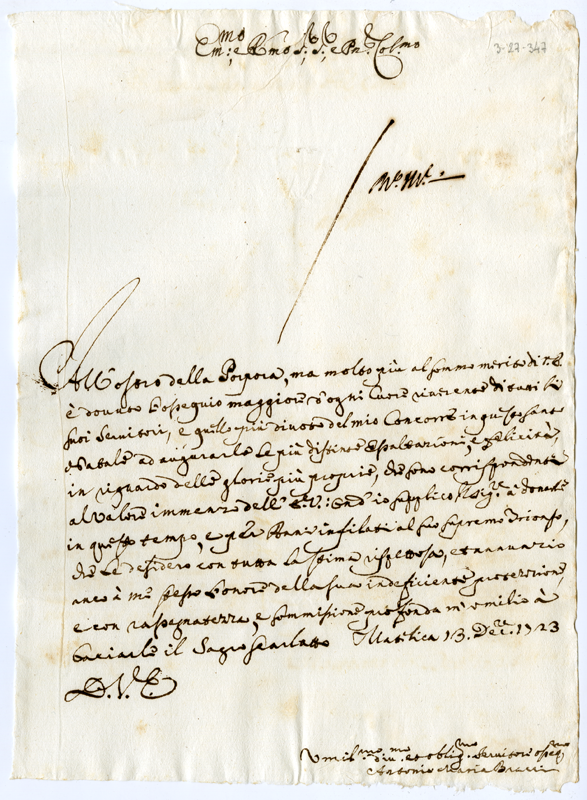 Em:mo e Rmo Sig.r Sig.r e Pn.e Col.mo
3-27-347
All'ostro della Porpora, ma molto più al sommo merito di V.E.
è dovuto l'ossequio maggiore d'ogni Cuore riverente di tutti li
suoi Servitori, e quello più divoto del mio Concorre in questo Santo
Natale ad augurarle le più distinte esaltazioni, e felicità,
in riguardo delle glorie più proprie, che sono corrispondenti
al Valore immenzo dell'E.V.: Ond'io supplico il Sig.re a donarle
in questo tempo, e per Anni infilati al suo supremo Trionfo,
che Le desidero con tutta la stima rispettosa, et annunzio
anco à me stesso l'onore della sua indeficiente protezzione,
e con rassegnatezza, e sommisione profonda m'umilio à
baciarle il Sagro scarlatto Matilica 13. Dec.re 1723
D.V.E.
Umil:mo div:mo et oblig:mo Servitore osseq:mo
Antonio Maria